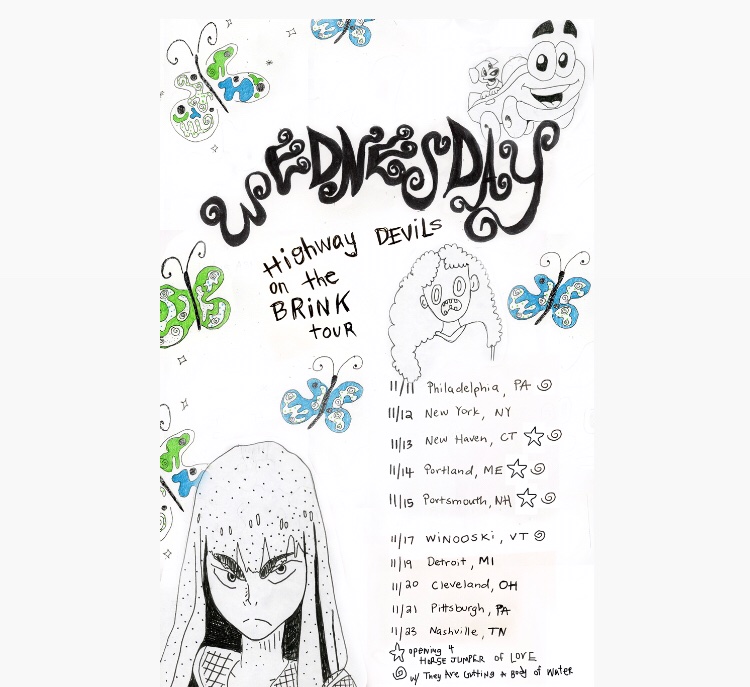 WEDNESDAY
Highway DEViLs
on the
BRiNK
TOUR
11/11 Philadelphia, PA
11/12 New York, NY
11/13 New Haven, CT ☆
11/14 Portland, ME ☆
11/15 Portsmouth, NH ☆
11/17 WiNOOSKi, VT
11/19 Detroit, MI
11/20 Cleveland, OH
11/21 Pittsburgh, PA
11/23 Nashville, TN
☆ opening 4
HORSE JUMPER of LOVE
w/ They Are Gutting A Body of Water